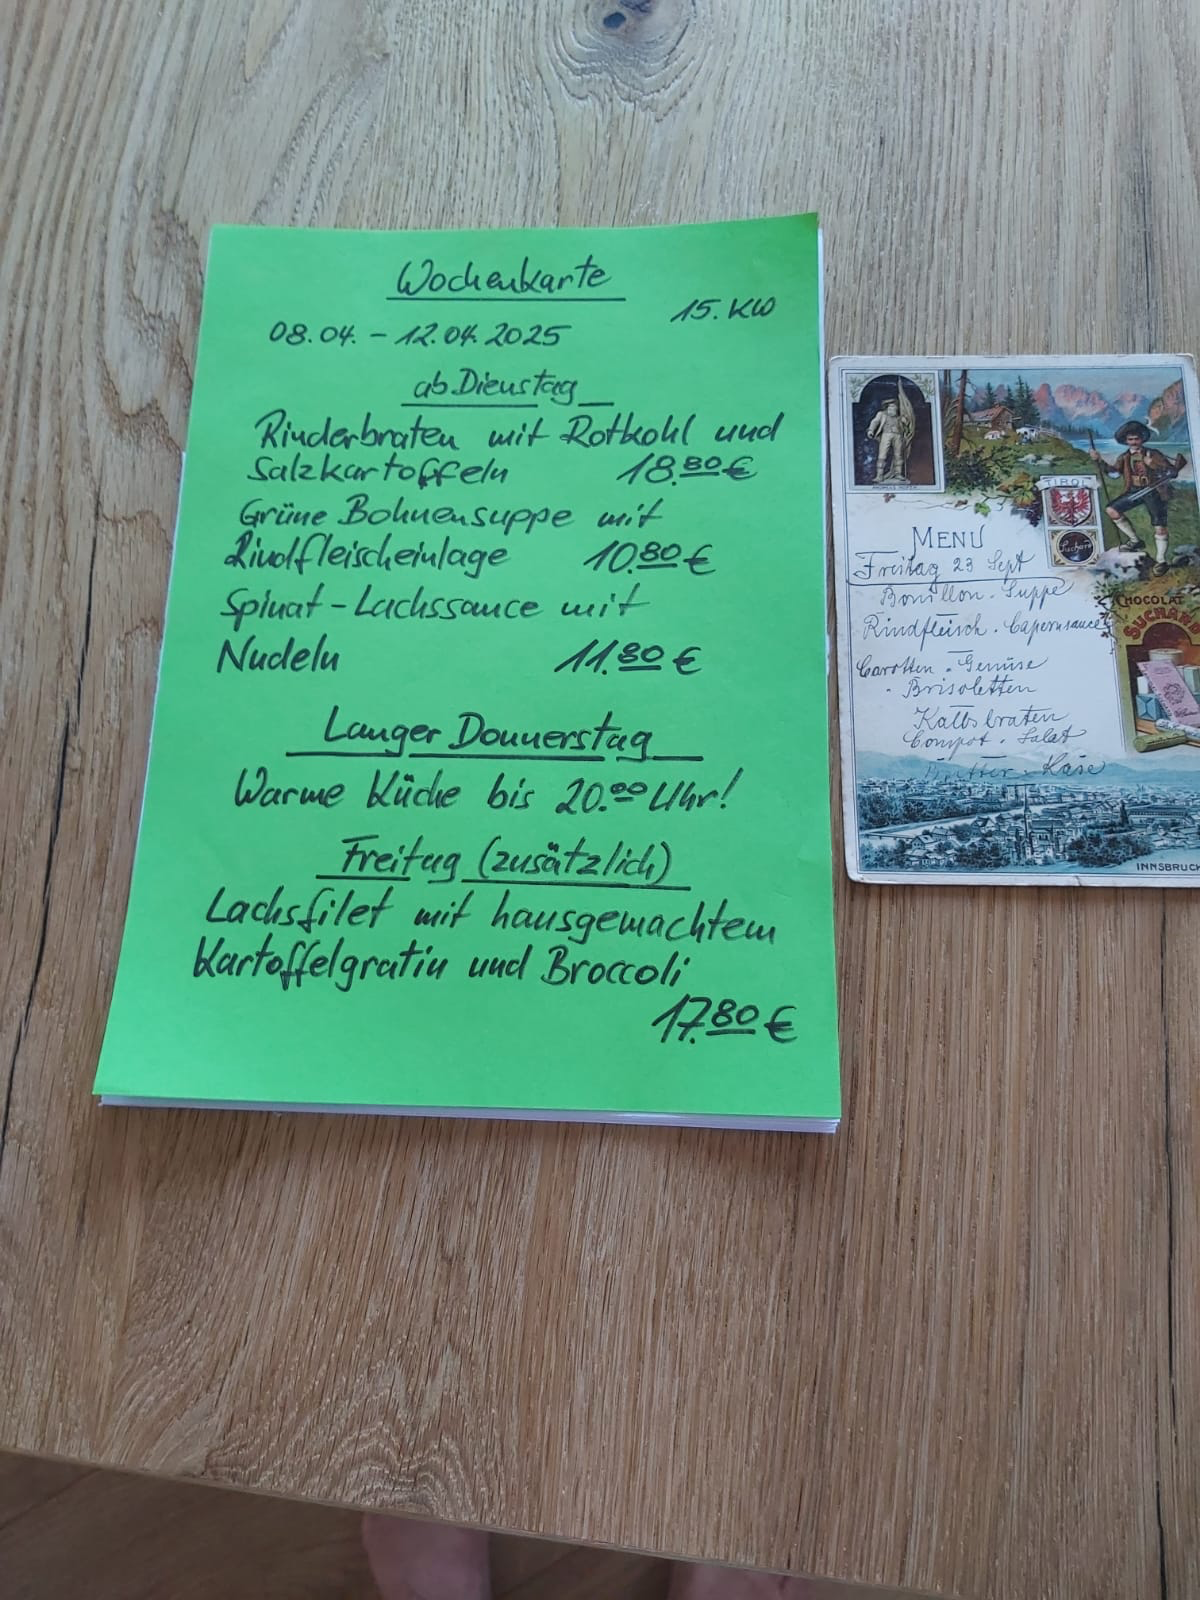 Wochenkarte
15. KW
08.04. - 12.04.2025
ab Dienstag
Rinderbraten mit Rotkohl und
Salzkartoffeln 18.80 €
Grüne Bohnensuppe mit
Rindfleischeinlage 10.80 €
Spinat-Lachssauce mit
Nudeln 11.80 €
Langer Donnerstag
Warme Küche bis 20.00 Uhr!
Freitag (zusätzlich)
Lachsfilet mit hausgemachtem
Kartoffelgratin und Broccoli
17.80 €
ANDREAS HOFER
TIROL
Suchard
MENU
Freitag 23 Sept
Bouillon-Suppe
Rindfleisch. Capernsauce
Carotten-Gemüse
Brisoletten
Kalbsbraten
Compot. Salat
Butter-Käse
CHOCOLAT
SUCHARD
INNSBRUCK